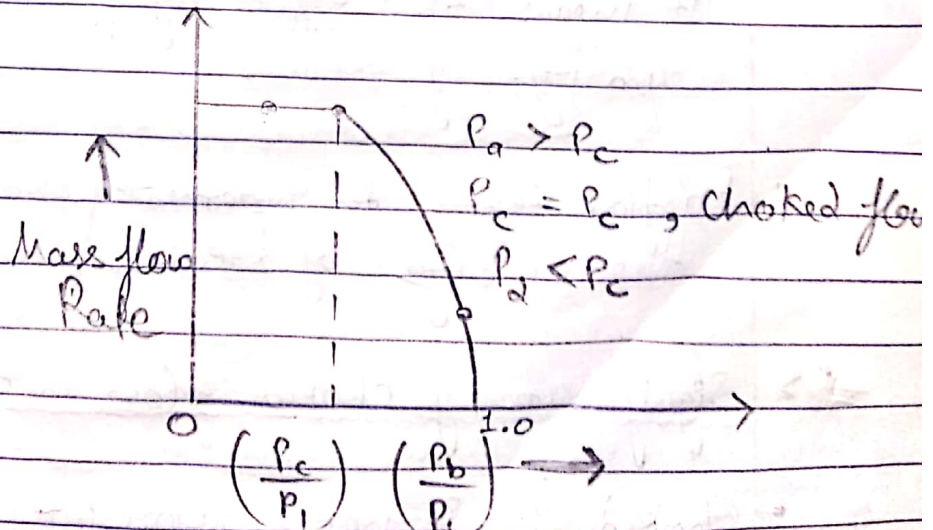 Pa > Pc
Pc = Pc, Choked flo
P2 < Pc
Mass flow
Rate
0
1.0
(Pc/P1) (Pb/P1)